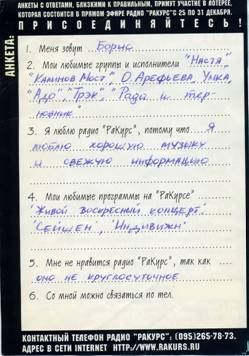 АНКЕТЫ С ОТВЕТАМИ, БЛИЗКИМИ К ПРАВИЛЬНЫМ, ПРИМУТ УЧАСТИЕ В ЛОТЕРЕЕ,
КОТОРАЯ СОСТОИТСЯ В ПРЯМОМ ЭФИРЕ РАДИО "РАКУРС" С 25 ПО 31 ДЕКАБРЯ.
ПРИСОЕДИНЯЙТЕСЬ!
АНКЕТА:
1. Меня зовут Борис.
2. Мои любимые группы и исполнители "Настя",
"Калинов Мост", О. Арефьева, Умка,
"Адо", "Трэк", "Рада и тер-
новник"
3. Я люблю радио "РаКурс", потому что Я
люблю хорошую музыку
и свежую информацию
4. Мои любимые программы на "РаКурсе"
"Живой воскресный концерт",
"Сейшен", "Индивижн"
5. Мне не нравится радио "РаКурс", так как
оно не круглосуточное
6. Со мной можно связаться по тел.
КОНТАКТНЫЙ ТЕЛЕФОН РАДИО "РАКУРС", (095)265-78-73.
АДРЕС В СЕТИ INTERNET HTTP://WWW.RAKURS.RU